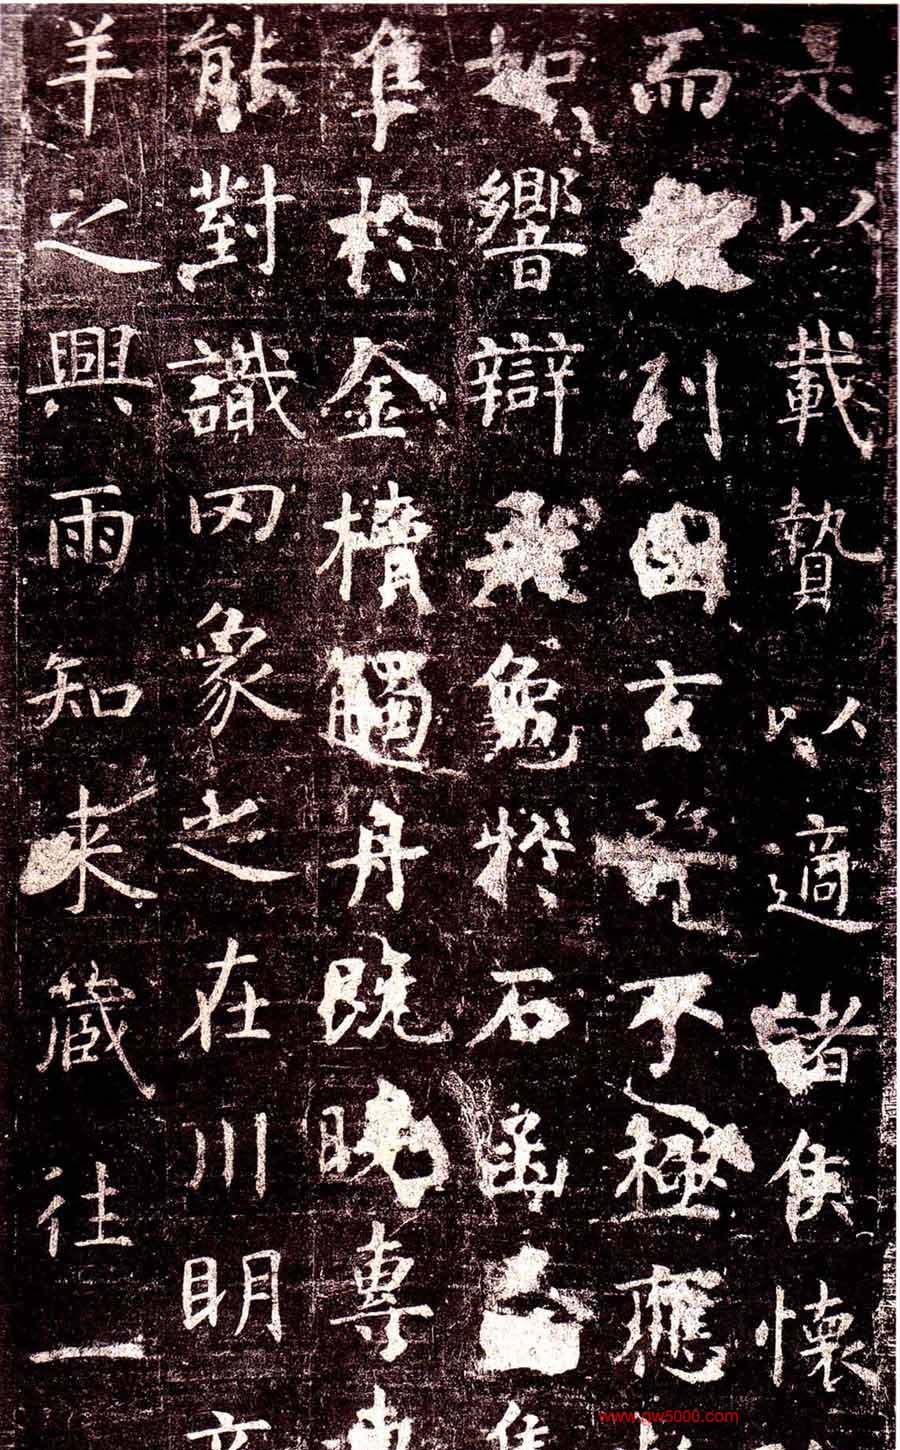 是以載贄以適諸侯懷
而列國玄覽不極應
如響辯飛龜於石函
隼於金櫝觸舟既曉專
能對識罔象之在川明
羊之興雨知來藏往一
www.gw5000.com